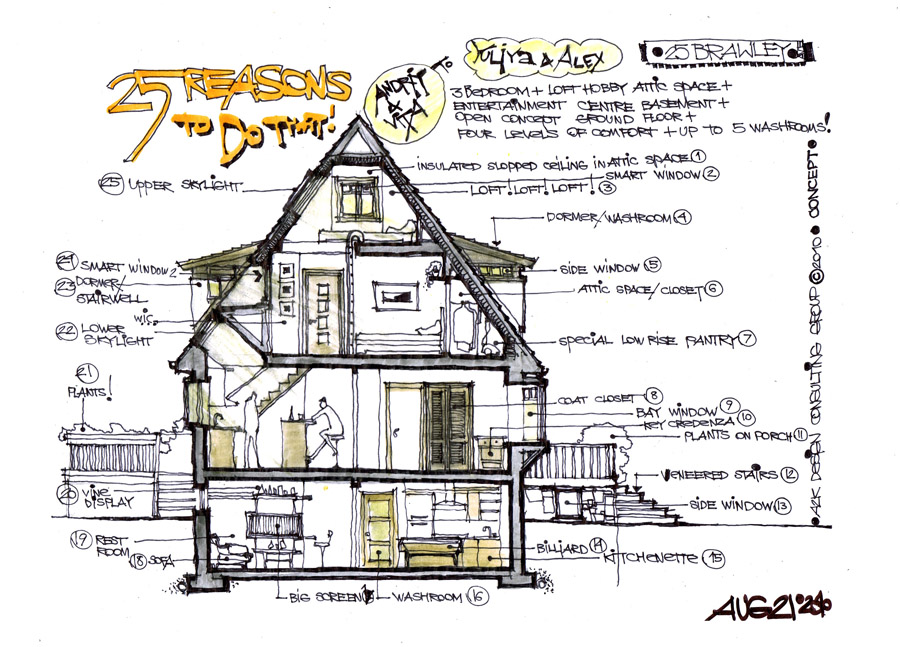 25 REASONS
TO DO THAT!
ANDRIY
&
VIRA
TO
YULIYA & ALEX
25 BRAWLEY
3 BEDROOM + LOFT HOBBY ATTIC SPACE +
ENTERTAINMENT CENTRE BASEMENT +
OPEN CONCEPT GROUND FLOOR +
FOUR LEVELS OF COMFORT + UP TO 5 WASHROOMS!
INSULATED SLOPPED CEILING IN ATTIC SPACE 1
SMART WINDOW 2
LOFT! LOFT! LOFT! 3
DORMER/WASHROOM 4
SIDE WINDOW 5
ATTIC SPACE/CLOSET 6
SPECIAL LOW RISE PANTRY 7
COAT CLOSET 8
BAY WINDOW 9
KEY CREDENZA 10
PLANTS ON PORCH 11
VENEERED STAIRS 12
SIDE WINDOW 13
BILLIARD 14
KITCHENETTE 15
WASHROOM 16
BIG SCREEN
18 SOFA
19 REST
ROOM
20 VINE
DISPLAY
21
PLANTS!
22 LOWER
SKYLIGHT
W.I.C.
23 DORMER/
STAIRWELL
24 SMART WINDOW 2
25 UPPER SKYLIGHT
A4K DESIGN CONSULTING GROUP © 2010 CONCEPT